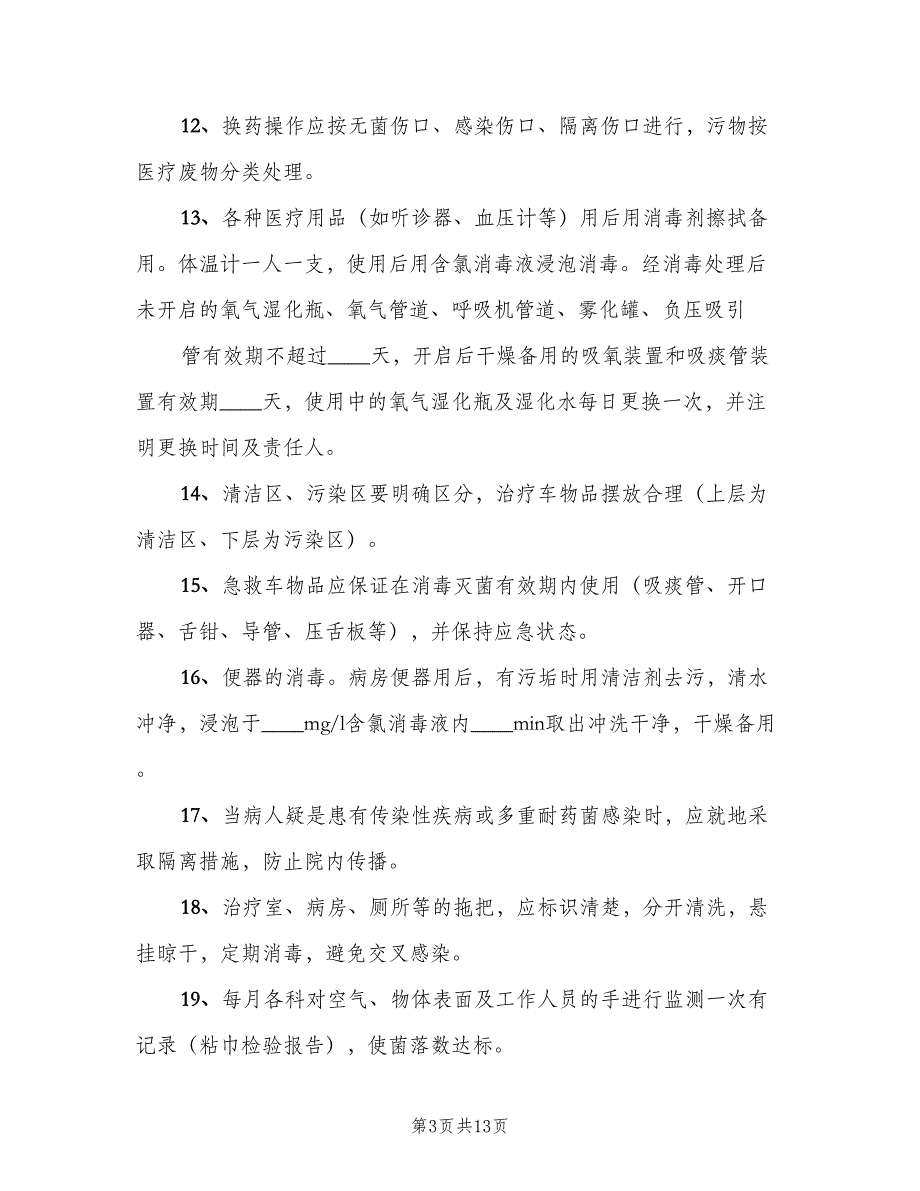 12、换药操作应按无菌伤口、感染伤口、隔离伤口进行，污物按
医疗废物分类处理。
13、各种医疗用品（如听诊器、血压计等）用后用消毒剂擦拭备
用。体温计一人一支，使用后用含氯消毒液浸泡消毒。经消毒处理后
未开启的氧气湿化瓶、氧气管道、呼吸机管道、雾化罐、负压吸引
管有效期不超过____天，开启后干燥备用的吸氧装置和吸痰管装
置有效期____天，使用中的氧气湿化瓶及湿化水每日更换一次，并注
明更换时间及责任人。
14、清洁区、污染区要明确区分，治疗车物品摆放合理（上层为
清洁区、下层为污染区）。
15、急救车物品应保证在消毒灭菌有效期内使用（吸痰管、开口
器、舌钳、导管、压舌板等），并保持应急状态。
16、便器的消毒。病房便器用后，有污垢时用清洁剂去污，清水
冲净，浸泡于____mg/l含氯消毒液内____min取出冲洗干净，干燥备用
。
17、当病人疑是患有传染性疾病或多重耐药菌感染时，应就地采
取隔离措施，防止院内传播。
18、治疗室、病房、厕所等的拖把，应标识清楚，分开清洗，悬
挂晾干，定期消毒，避免交叉感染。
19、每月各科对空气、物体表面及工作人员的手进行监测一次有
记录（粘巾检验报告），使菌落数达标。
第3页共13页